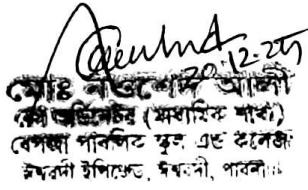 20.12.25
মোঃ নওশেদ আলী
(মাধ্যমিক শাখা)
বেপজা পাবলিক স্কুল এন্ড কলেজ
ঈশ্বরদী ইপিজেড, ঈশ্বরদী, পাবনা।